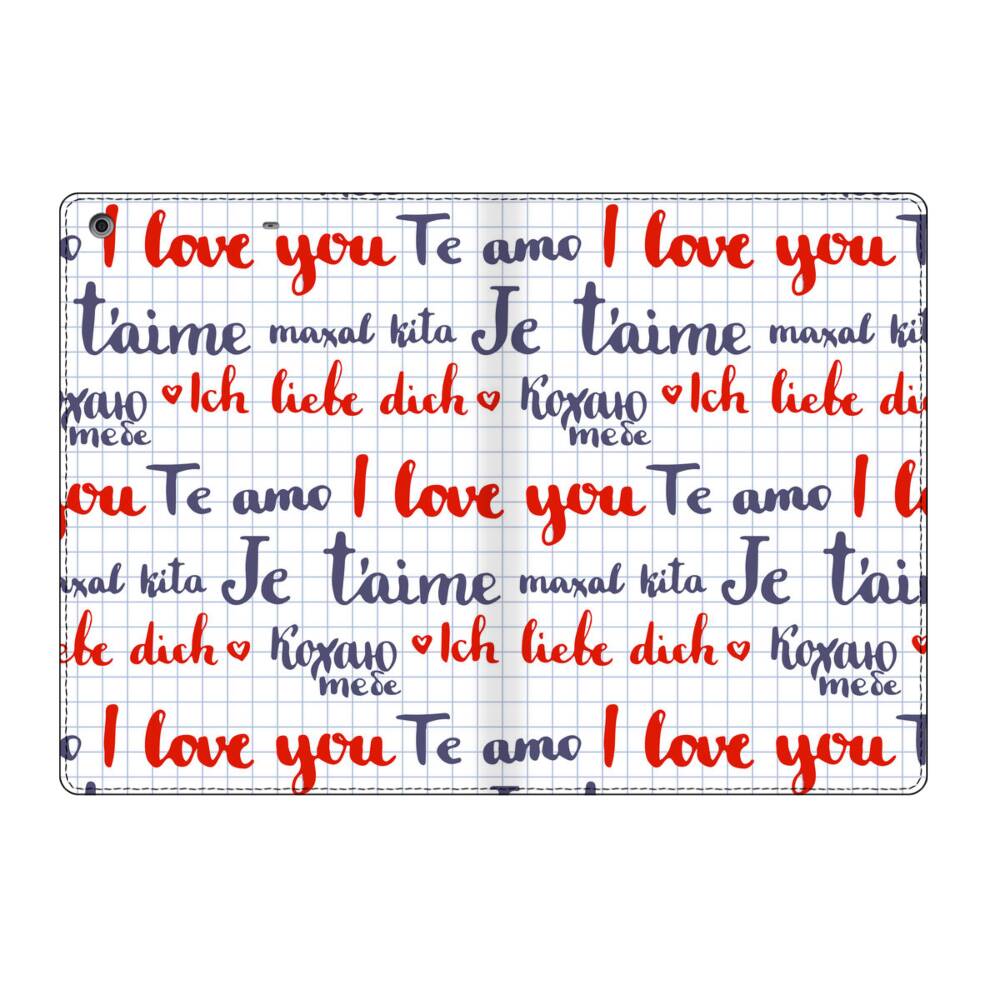 I love you Te amo I love you
t'aime maxal kita Je t'aime maxal
Кохаю ♥Ich liebe dich♥ Кохаю ♥Ich liebe
тебе тебе
you Te amo I love you Te amo I
kita Je t'aime maxal kita Je
dich♥ Кохаю ♥Ich liebe dich♥ Кохаю
тебе тебе
I love you Te amo I love you